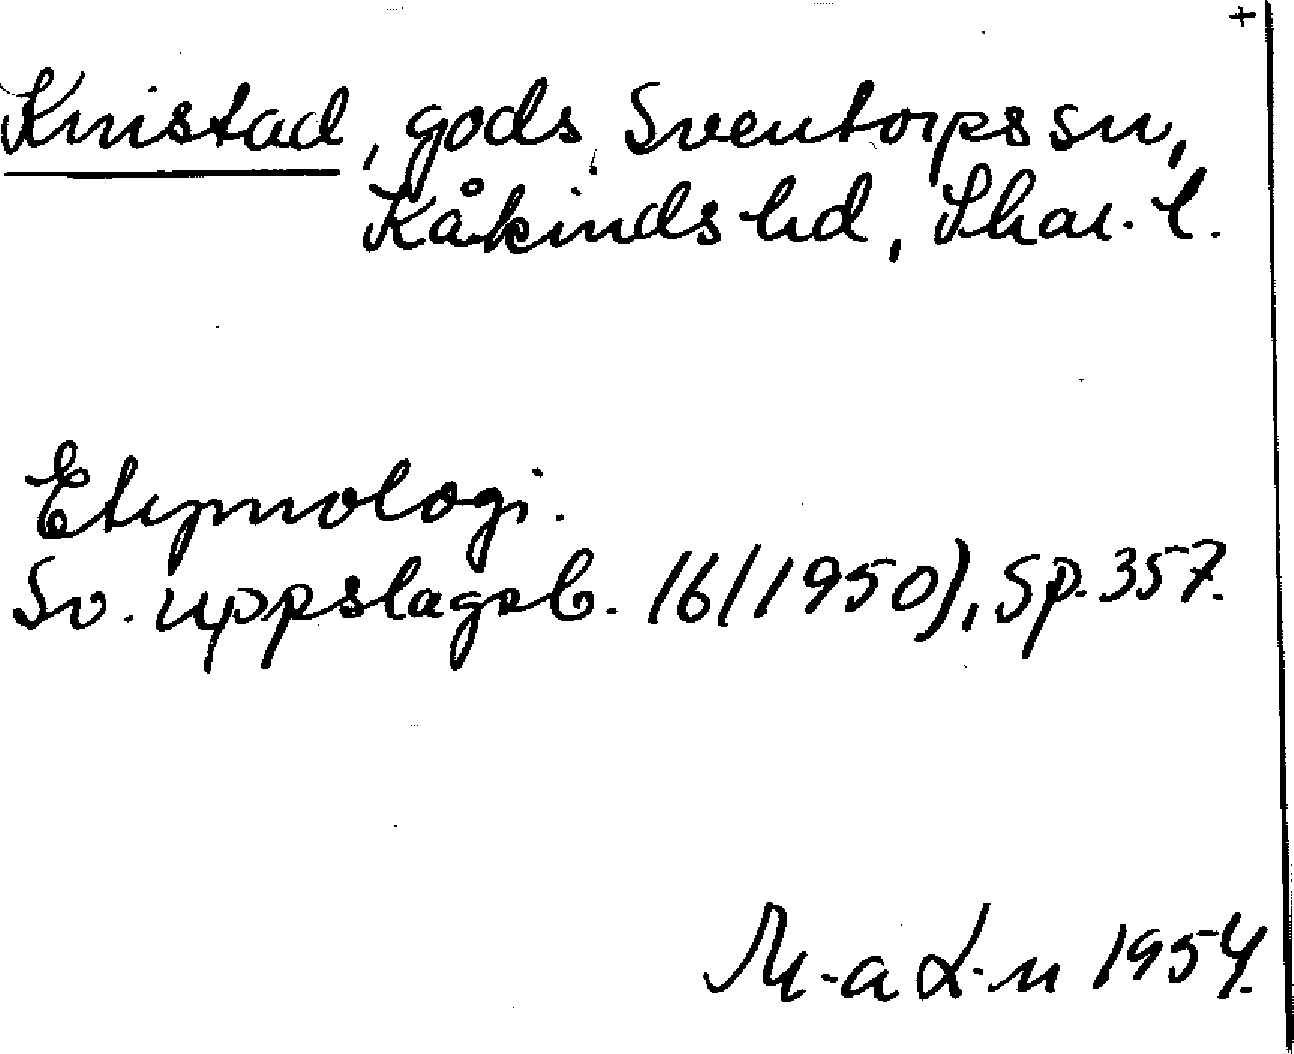 +
Knistad, gods, Sventorps sn,
Kåkinds hd, Skar. l.
Etymologi.
Sv. uppslagsb. 16(1950), Sp. 357.
M-a L-n 1954.